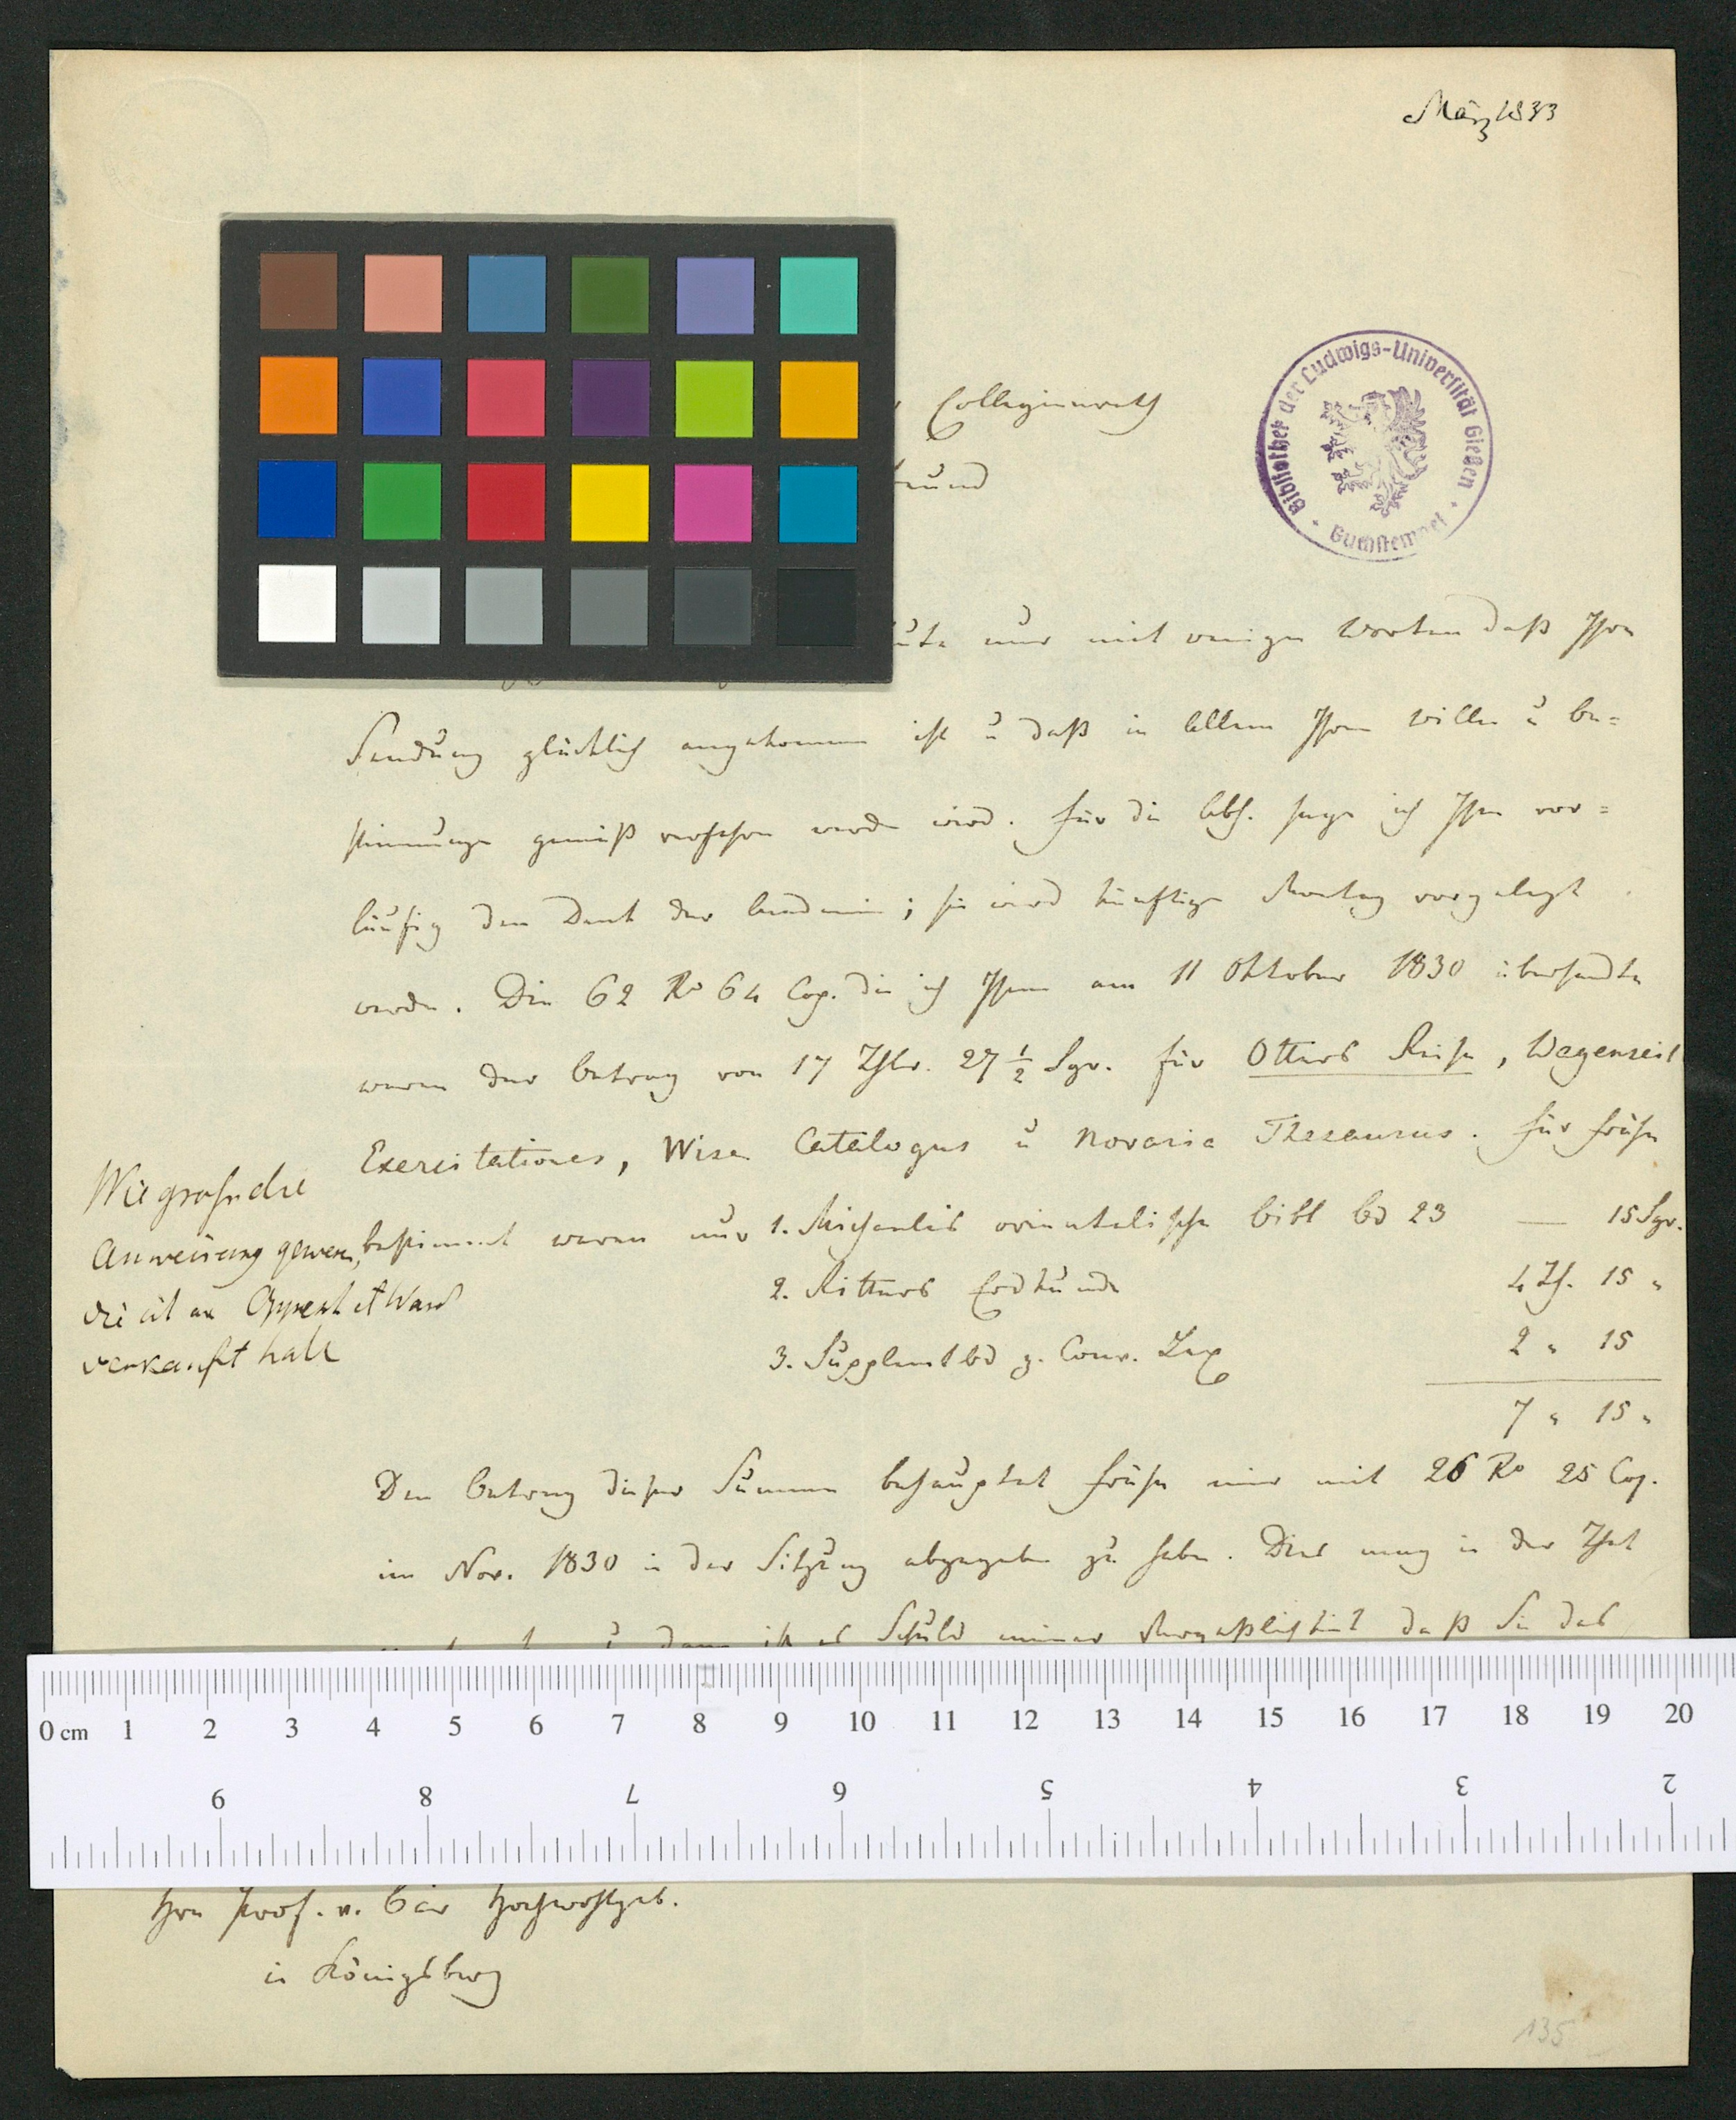 März 1833
Collegienrath
Bibliothek der Ludwigs-Universität Gießen
Buchstempel
heute nur mit wenigen Worten daß Ihre
Sendung glücklich angekommen ist u daß in Allem Ihrem Willen u Be=
stimmungen gemäß verfahren werden wird. Für die Abh. sage ich Ihnen vor=
läufig den Dank der Academie; sie wird künftigen Montag vorgelegt
werden. Die 62 Ro 64 Cop. die ich Ihnen am 11 Oktober 1830 übersandte
waren der Betrag von 17 Thlr. 27 1/2 Sgr. für Otters Reise, Wagenseil
Exercitationes, Wise Catalogus u Novaria Thesaurus. Für Frähn
bestimmt waren nur 1. Michaelis orientalische Bibl Bd 23 — 15 Sgr.
2. Ritters Erdkunde 4 Th. 15 "
3. Supplemtbd z. Conv. Lex 2 " 15
7 " 15 "
Wie gross die
Anweisung gewesen,
die ich an
verkauft habe
Den Betrag dieser Summe behauptet Frähn mir mit 26 Ro 25 Cop.
im Nov. 1830 in der Sitzung abgegeben zu haben. Dies mag in der That
dann ist es Schuld meiner Vergeßlichkeit daß Sie das
0 cm 1 2 3 4 5 6 7 8 9 10 11 12 13 14 15 16 17 18 19 20
9 8 7 6 5 4 3 2
Hrn Prof. v. Bär Hochwohlgeb.
in Königsberg
135